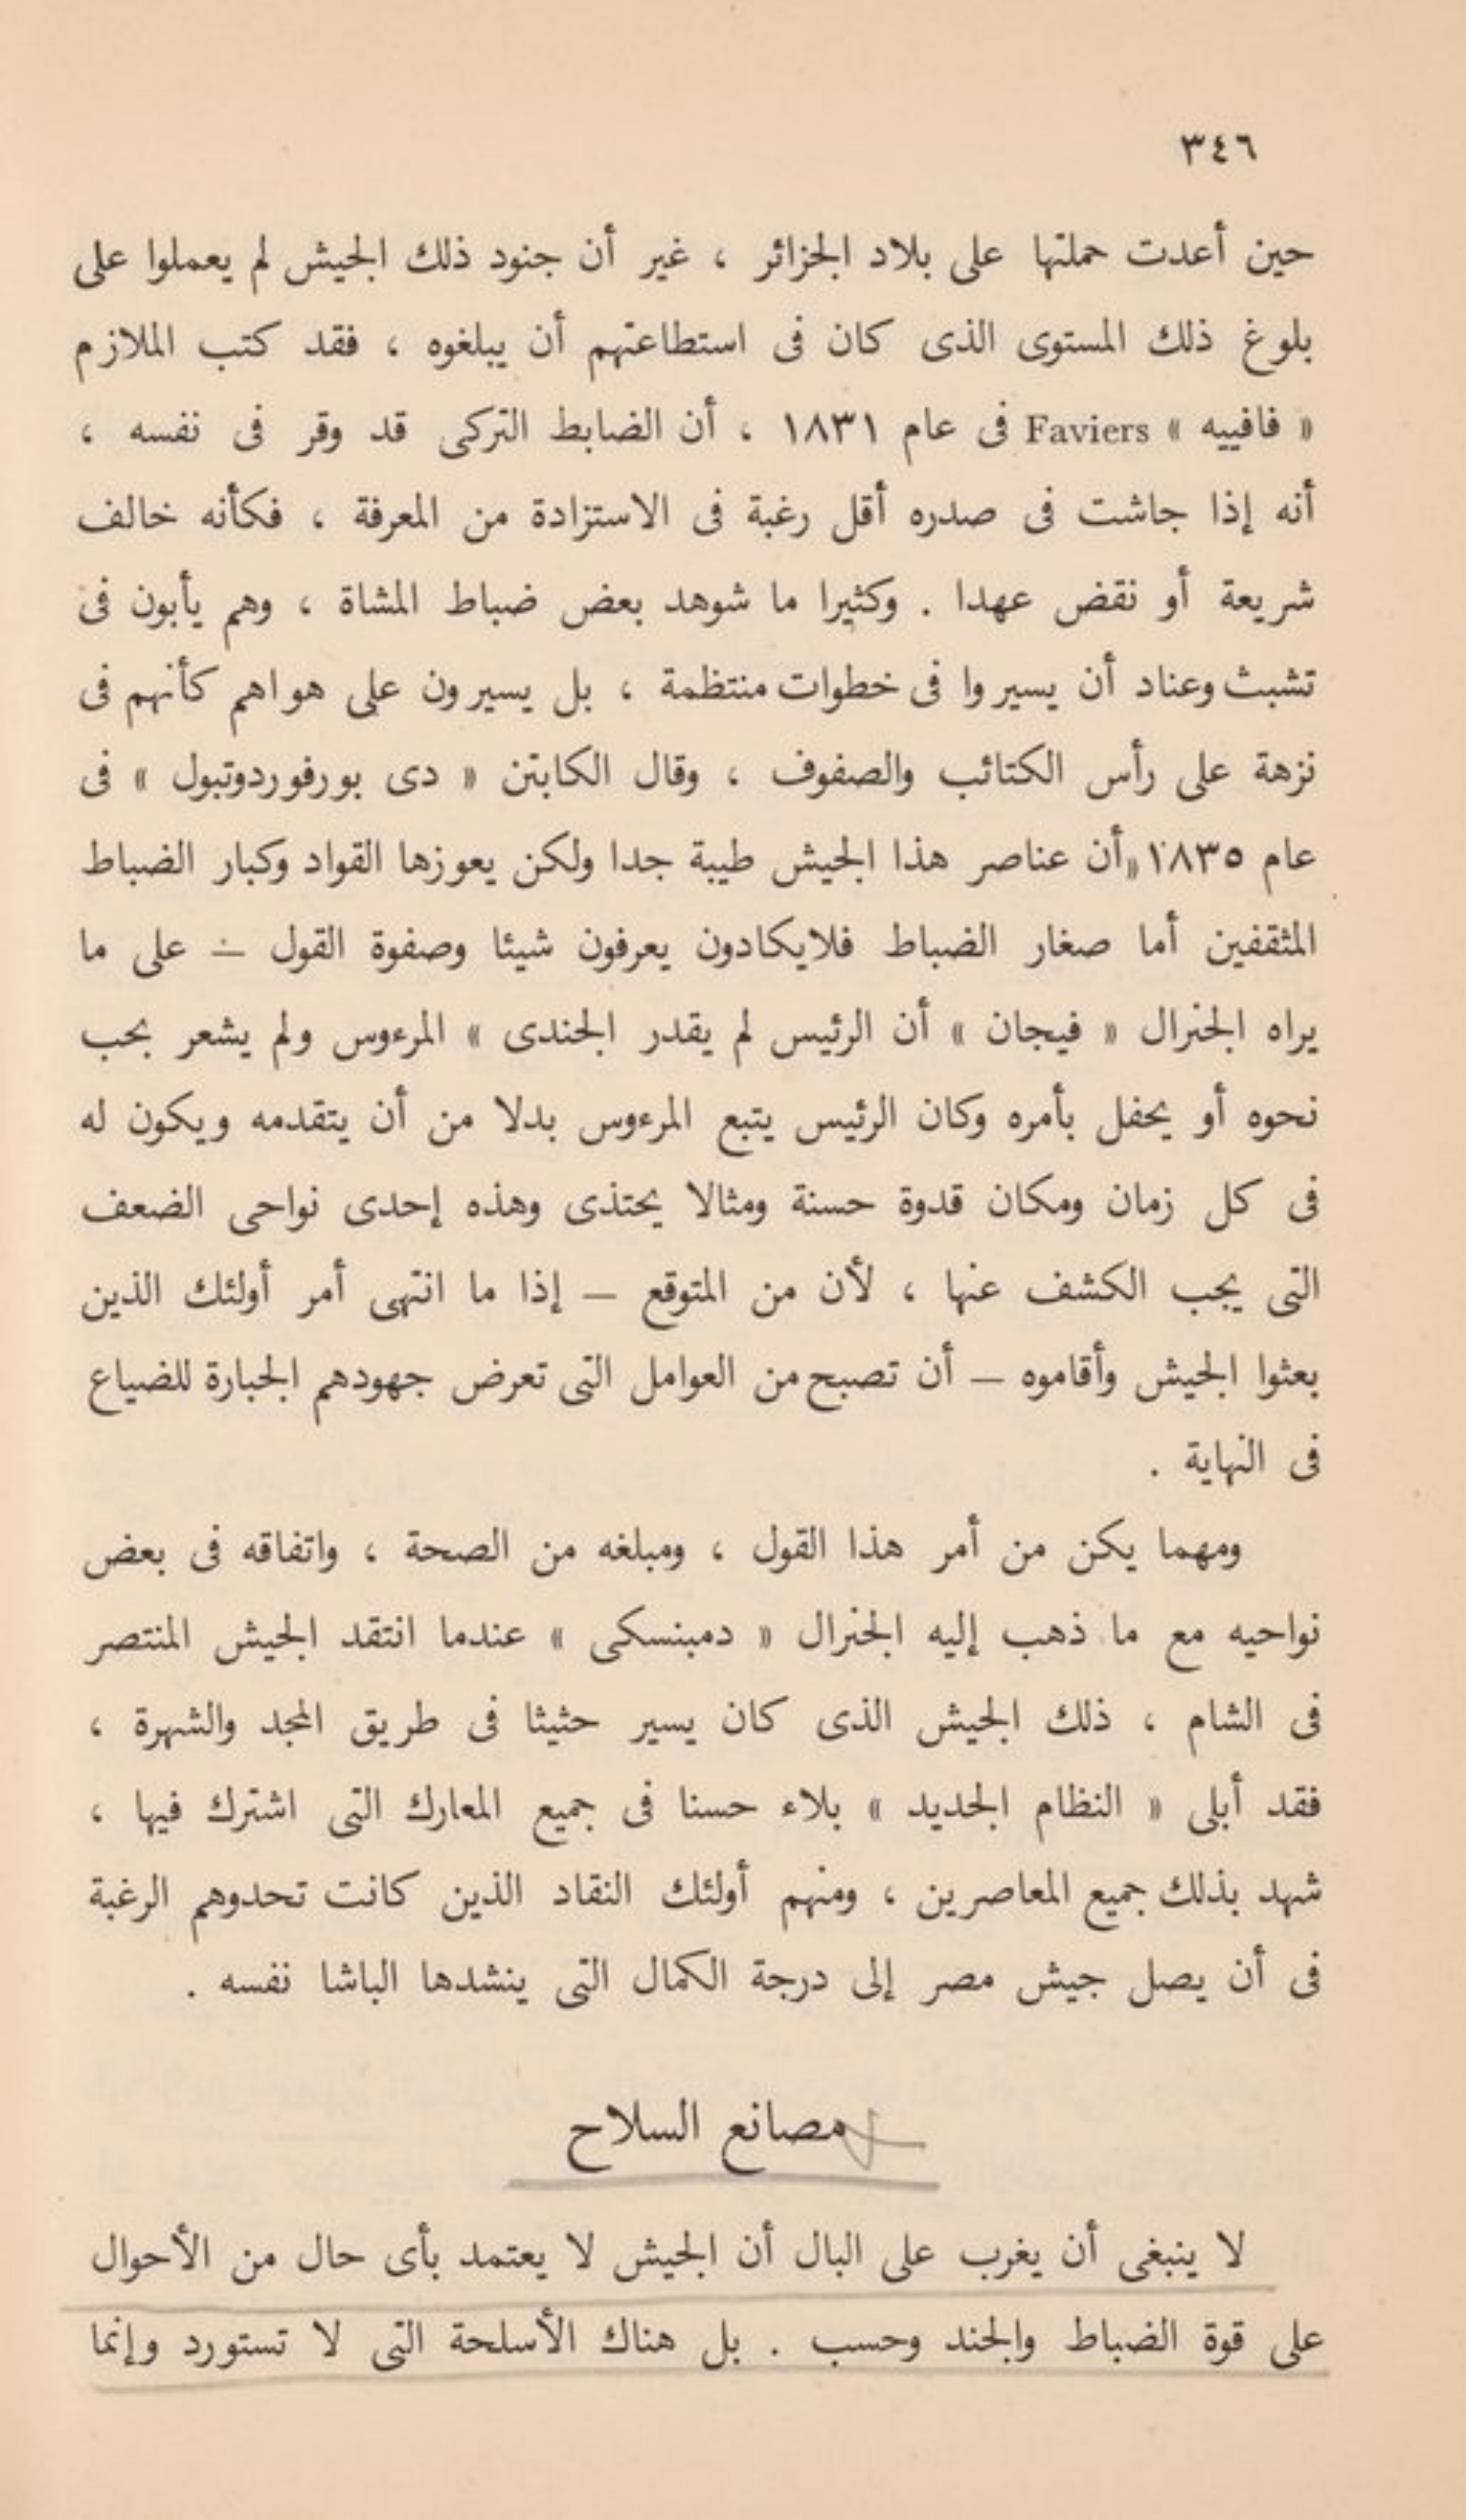 ٣٤٦
حين أعدت حملتها على بلاد الجزائر ، غير أن جنود ذلك الجيش لم يعملوا على
بلوغ ذلك المستوى الذى كان فى استطاعتهم أن يبلغوه ، فقد كتب الملازم
« فافييه » Faviers فى عام ١٨٣١ ، أن الضابط التركى قد وقر فى نفسه ،
أنه إذا جاشت فى صدره أقل رغبة فى الاستزادة من المعرفة ، فكأنه خالف
شريعة أو نقض عهدا . وكثيرا ما شوهد بعض ضباط المشاة ، وهم يأبون فى
تشبث وعناد أن يسيروا فى خطوات منتظمة ، بل يسيرون على هواهم كأنهم فى
نزهة على رأس الكتائب والصفوف ، وقال الكابتن « دى بورفوردوتبول » فى
عام ١٨٣٥ «أن عناصر هذا الجيش طيبة جدا ولكن يعوزها القواد وكبار الضباط
المثقفين أما صغار الضباط فلايكادون يعرفون شيئا وصفوة القول — على ما
يراه الجنرال « فيجان » أن الرئيس لم يقدر الجندى » المرءوس ولم يشعر بحب
نحوه أو يحفل بأمره وكان الرئيس يتبع المرءوس بدلا من أن يتقدمه ويكون له
فى كل زمان ومكان قدوة حسنة ومثالا يحتذى وهذه إحدى نواحى الضعف
التى يجب الكشف عنها ، لأن من المتوقع — إذا ما انتهى أمر أولئك الذين
بعثوا الجيش وأقاموه — أن تصبح من العوامل التى تعرض جهودهم الجبارة للضياع
فى النهاية .
ومهما يكن من أمر هذا القول ، ومبلغه من الصحة ، واتفاقه فى بعض
نواحيه مع ما ذهب إليه الجنرال « دمبنسكى » عندما انتقد الجيش المنتصر
فى الشام ، ذلك الجيش الذى كان يسير حثيثا فى طريق المجد والشهرة ،
فقد أبلى « النظام الجديد » بلاء حسنا فى جميع المعارك التى اشترك فيها ،
شهد بذلك جميع المعاصرين ، ومنهم أولئك النقاد الذين كانت تحدوهم الرغبة
فى أن يصل جيش مصر إلى درجة الكمال التى ينشدها الباشا نفسه .
مصانع السلاح
لا ينبغى أن يغرب على البال أن الجيش لا يعتمد بأى حال من الأحوال
على قوة الضباط والجند وحسب . بل هناك الأسلحة التى لا تستورد وإنما